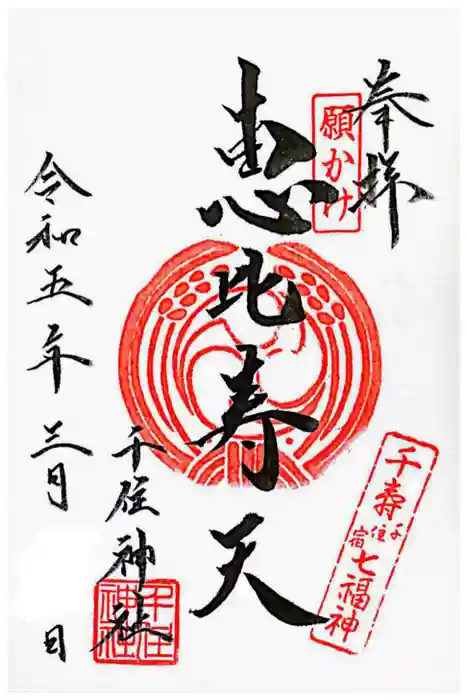 奉拝
願かけ
恵比寿天
千寿
千住宿
七福神
千住神社
千住神社
令和五年三月 日